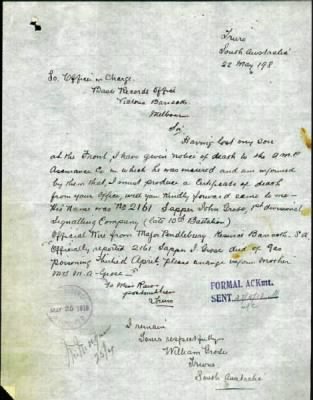 Truro
South Australia
22 May 198
To Officer in Charge
Base Records Office
Victoria Barracks
Melbour
Sir
Having lost my son
at the Front, I have given notice of death to the A.M.P.
Assurance Co in which he was insured and am informed
by them that I must produce a Certificate of death
from your Office, will you kindly forward same to me
His Name was No 2161 Sapper John Grose, 1st Divisional
Signalling Company (late 10th Battalion)
Official Wire from Major Keswick Barracks. S.A
Officially reported 2161 Sapper J. Grose died of Gas
poisoning Third April please inform Mother
Mrs M. A. Grose
To Miss
postmistress
Truro
FORMAL ACKmt.
SENT
MAY 25 1918
I remain
Yours respectfully
William Grose
Truro
South Australia